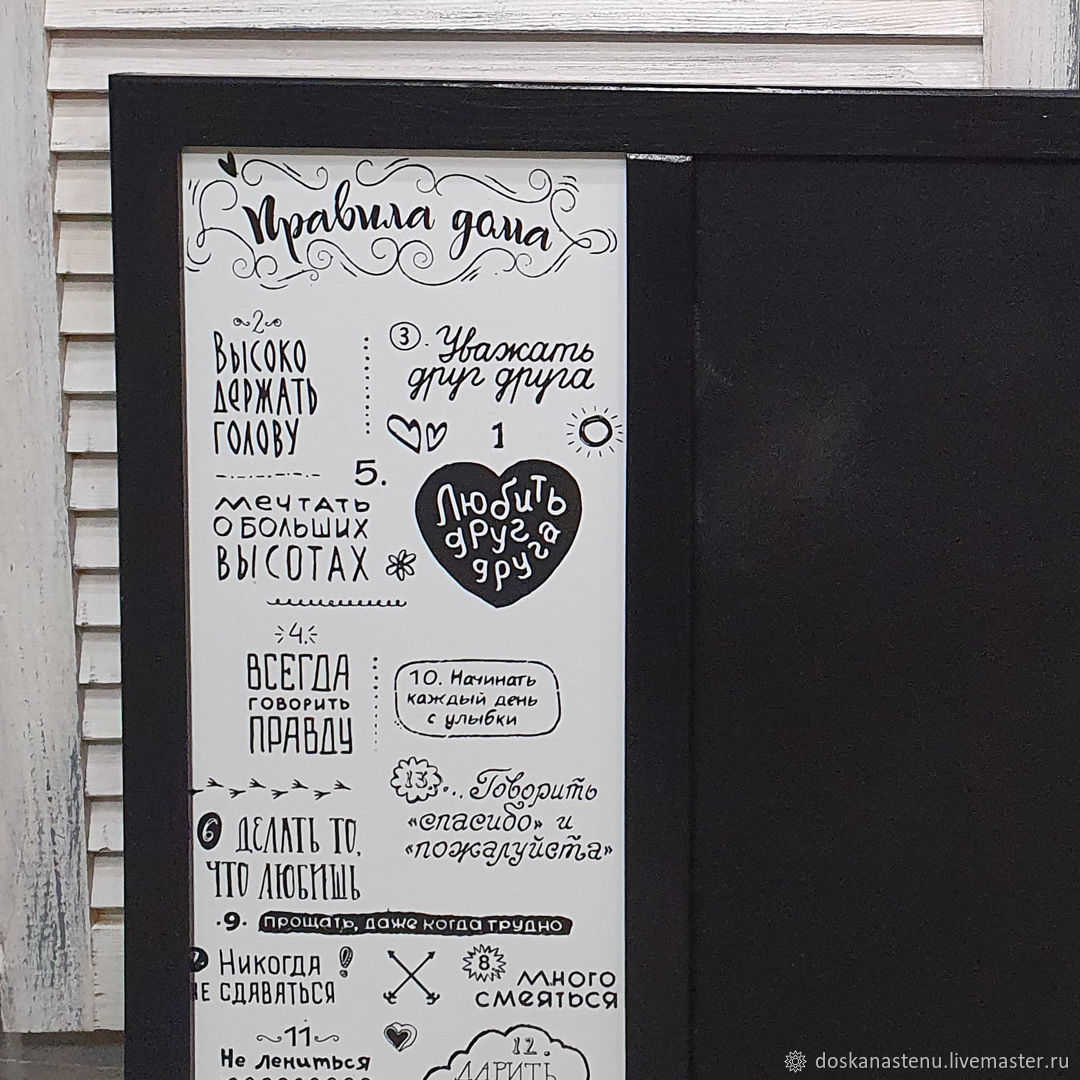 Правила дома
2
Высоко
держать
голову
3. Уважать
друг друга
1
Любить
друг
друга
5.
мечтать
о больших
высотах
4.
Всегда
говорить
правду
10. Начинать
каждый день
с улыбки
13... Говорить
«спасибо» и
«пожалуйста»
6 Делать то,
что любишь
·9· прощать, даже когда трудно
Никогда
не сдаваться
8.
много
смеяться
11
Не лениться
12.
Дарить
doskanastenu.livemaster.ru